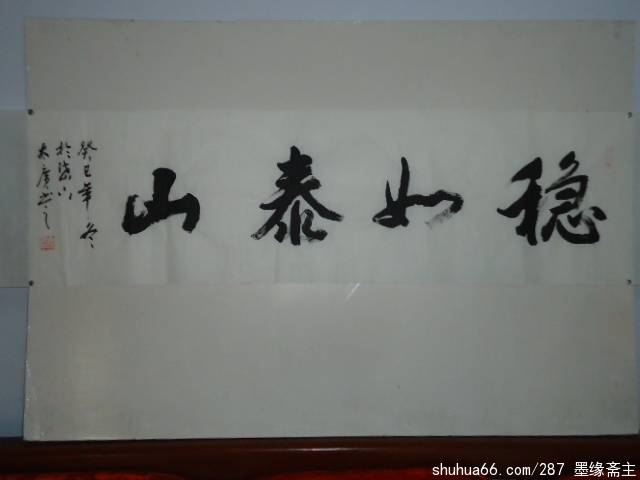 稳如泰山
癸巳年冬
於
太广书之
shuhua66.com/287 墨缘斋主